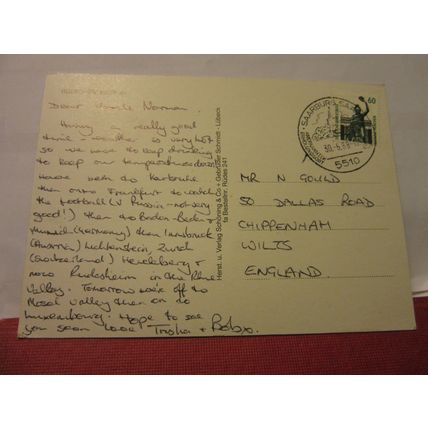 Dear Uncle Norman
Having a really good
time - weather is very hot
so we have to keep drinking
to keep our temperatures down
Have been to Karlsruhe
then onto Frankfurt to watch
the football (V Russia - not very
good!) then to Baden-Baden &
(Germany) then Innsbruck
(Austria) Lichtenstein, Zurich
(Switzerland) Heidelberg &
now Rudesheim in the Rhine
Valley. Tomorrow we're off to
Mosel Valley then on to
Luxembourg. Hope to see
you soon love Trisha & Bob x.
Herst. u. Verlag Schöning & Co + Gebrüder Schmidt - Lübeck
Bestellnr. Rüdes 241
SAARBURG
5510
60
MR N GOULD
50 DALLAS ROAD
CHIPPENHAM
WILTS
ENGLAND